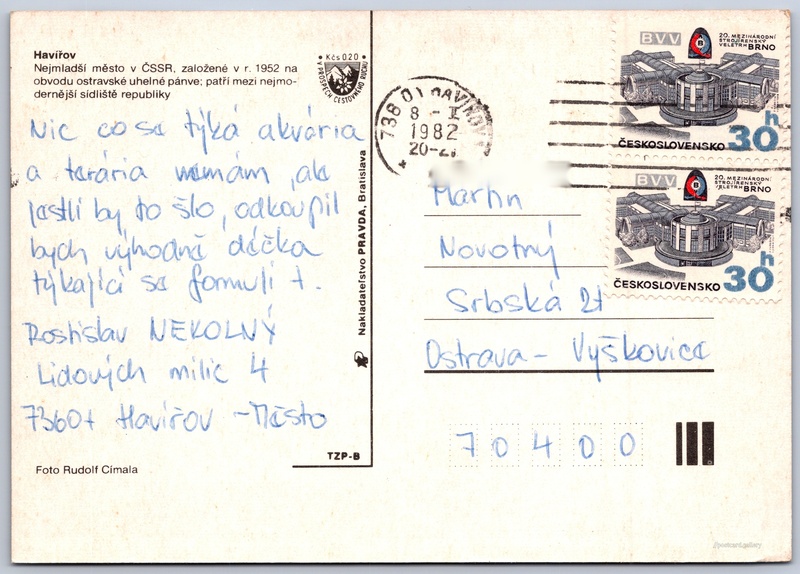 Havířov
Nejmladší město v ČSSR, založené v r. 1952 na
obvodu ostravské uhelné pánve; patří mezi nejmo-
dernější sídliště republiky
Kčs 0,20
V PROSPĚCH CESTOVNÉHO RUCHU
Nic co se týká akvária
a terária nemám, ale
jestli by to šlo, odkoupil
bych výhodně déčka
týkající se formulí 1.
Rostislav NEKOLNÝ
Lidových milic 4
73601 Havířov - Město
Foto Rudolf Címala
TZP-B
Nakladateľstvo PRAVDA, Bratislava
738 01 HAVÍŘOV
8 - I
1982
20-21
BVV
20. MEZINÁRODNÍ
STROJÍRENSKÝ
VELETRH BRNO
ČESKOSLOVENSKO 30h
BVV
20. MEZINÁRODNÍ
STROJÍRENSKÝ
VELETRH BRNO
ČESKOSLOVENSKO 30h
Martin
Novotný
Srbská 21
Ostrava - Vyškovice
70400